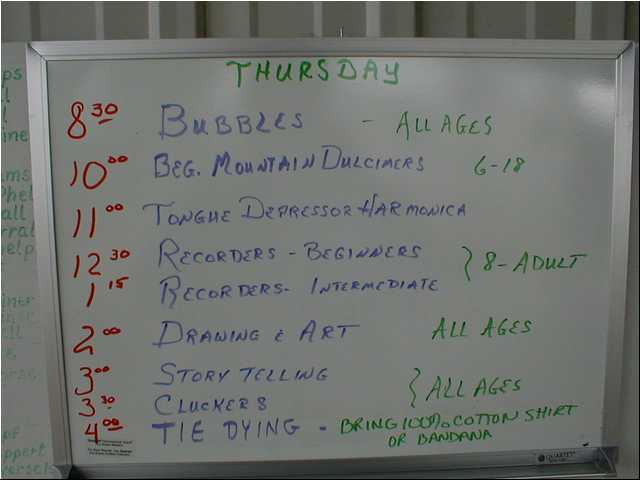 THURSDAY
8 30 BUBBLES - ALL AGES
10 00 BEG. MOUNTAIN DULCIMERS 6-18
11 00 TONGUE DEPRESSOR HARMONICA
12 30 RECORDERS - BEGINNERS } 8-ADULT
1 15 RECORDERS- INTERMEDIATE
2 00 DRAWING & ART ALL AGES
3 00 STORY TELLING } ALL AGES
3 30 CLUCKERS
4 00 TIE DYING - BRING 100% COTTON SHIRT
OR BANDANA
QUARTET